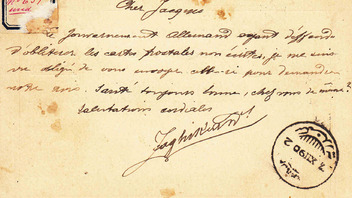 Cher Jacques
Le gouvernement Allemand ayant défendu
d'oblitérer les cartes postales non écrites, je me suis
vu obligé de vous envoyer celle-ci pour demander
votre avis. Santé toujours bonne, chez moi de même?
Salutations cordiales
3 XII 90 2